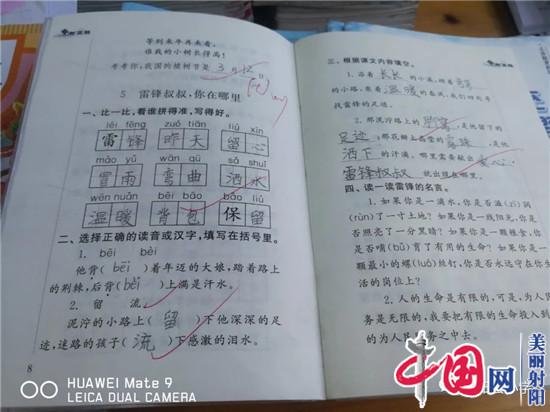 等到来年再来看,
谁栽的小树长得高!
考考你,我国的植树节是 3月12
5 雷锋叔叔,你在哪里
一、比一比,看谁拼得准,写得好。
léi fēng zuó tiān liú xīn
雷锋 昨天 留心
mào yǔ wān qū sǎ shuǐ
冒雨 弯曲 洒水
wēn nuǎn bēi bāo bǎo liú
温暖 背包 保留
二、选择正确的读音或汉字,填写在括号里。
1. bēi bèi
他背(bēi)着年迈的大娘,踏着路上
的荆棘,后背(bèi)上满是汗水。
2. 留 流
泥泞的小路上(留)下他深深的足
迹,迷路的孩子(流)下感激的泪水。
8
三、根据课文内容填空。
1. 沿着长长的小溪,
的小路,
温暖
找雷锋的足迹。
2. 那泥泞路上的脚窝,是他留下的
足迹;那花瓣上晶莹的露珠,是他
洒下的汗滴。哪里需要献出爱心,
雷锋叔叔就出现在哪里。
四、读一读雷锋的名言。
1. 如果你是一滴水,你是否滋(zī)润
(rùn)了一寸土地?如果你是一线阳光,你是
否照亮了一分黑暗?如果你是一颗粮食,你
是否哺(bǔ)育了有用的生命?如果你是一
颗最小的螺(luó)丝钉,你是否永远守在你生
活的岗位上?
2. 人的生命是有限的,可是,为人民
务是无限的,我要把有限的生命投入到
的为人民服务之中去。
HUAWEI Mate 9
LEICA DUAL CAMERA
中国网
美丽射阳